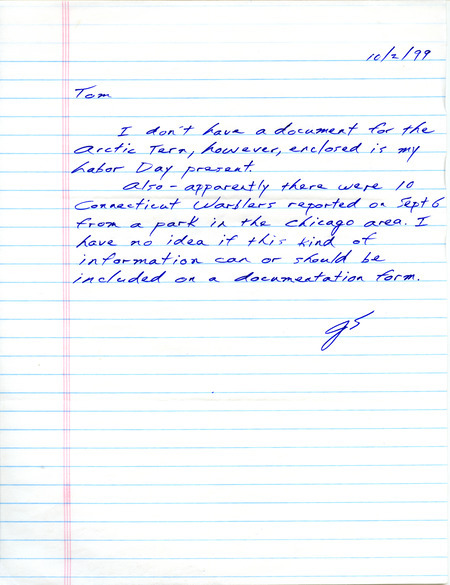 10/2/99
Tom
I don't have a document for the
Arctic Tern, however, enclosed is my
Labor Day present.
Also - apparently there were 10
Connecticut Warblers reported on Sept 6
from a park in the Chicago area. I
have no idea if this kind of
information can or should be
included on a documentation form.
JS